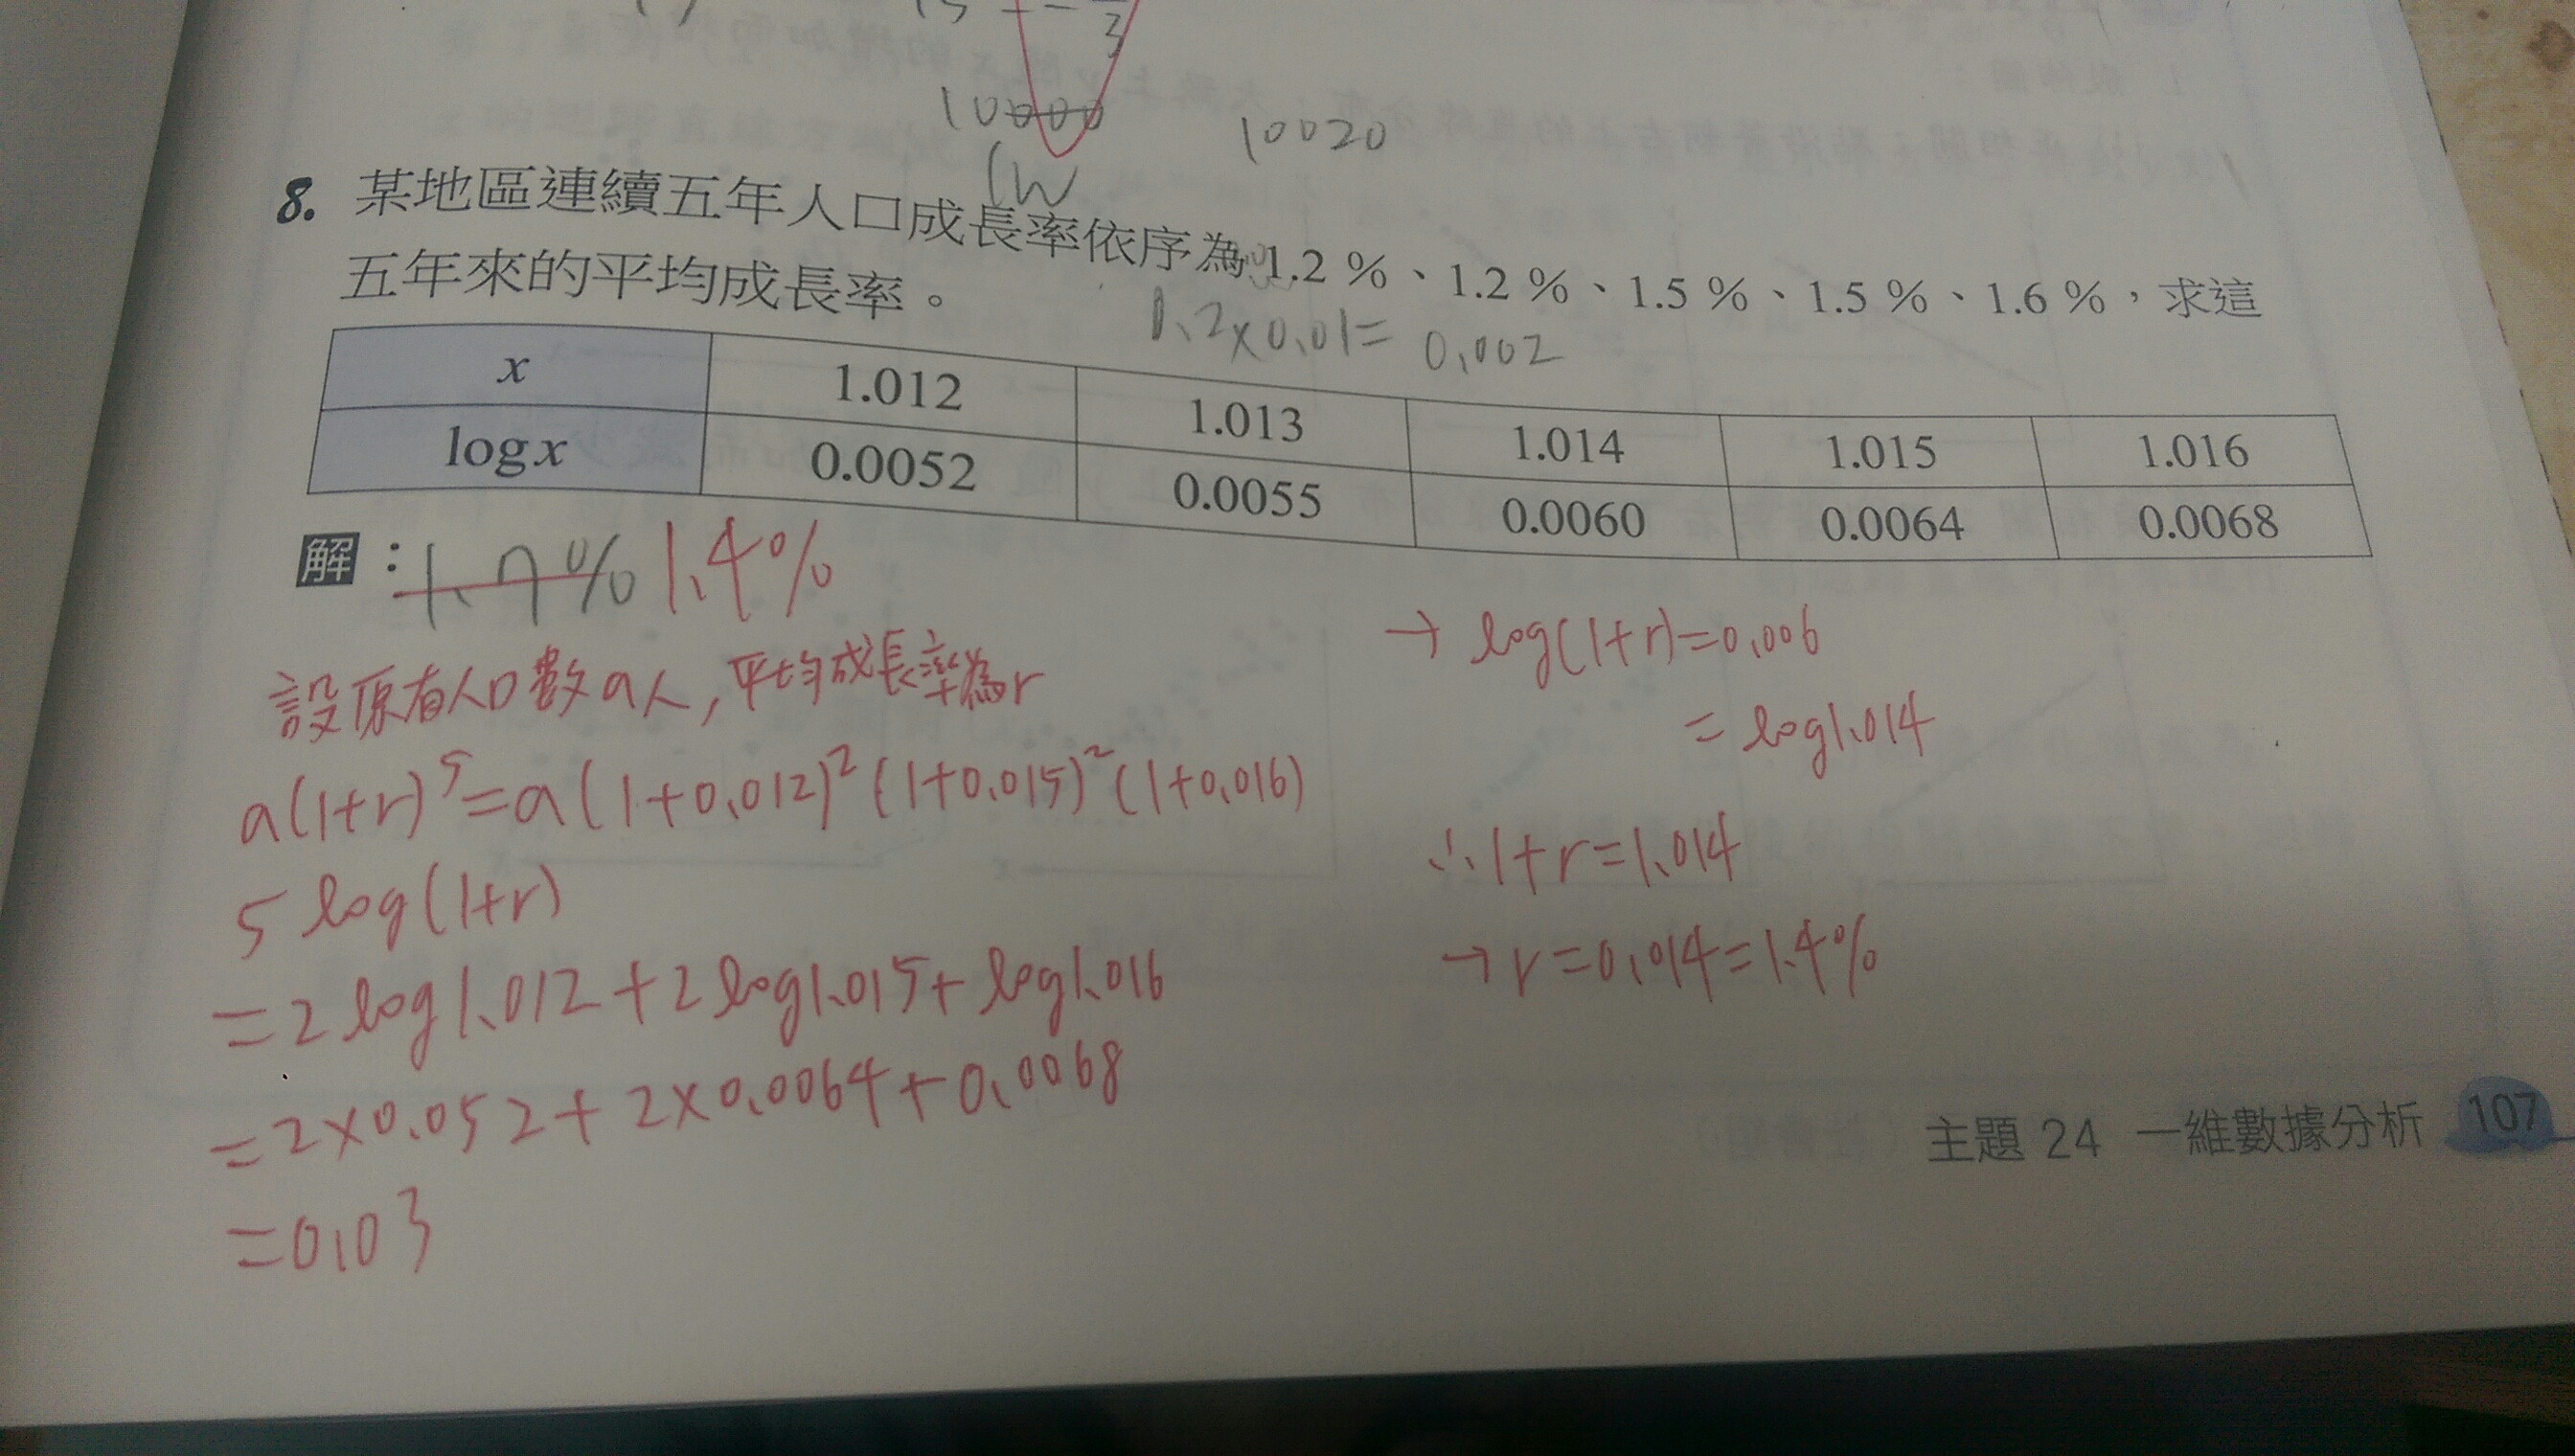 3
10000
10020
8. 某地區連續五年人口成長率依序為 1.2 %、1.2 %、1.5 %、1.5 %、1.6 %，求這
五年來的平均成長率。
0.2×0.01= 0.002
x 1.012 1.013 1.014 1.015 1.016
log x 0.0052 0.0055 0.0060 0.0064 0.0068
解： 1.4%
設原有人口數a人,平均成長率為r
a(1+r)⁵=a(1+0.012)²(1+0.015)²(1+0.016)
5 log(1+r)
=2 log1.012+2log1.015+log1.016
=2×0.052+2×0.0064+0.0068
=0.03
→ log(1+r)=0.006
= log1.014
∴1+r=1.014
→r=0.014=1.4%
主題 24 一維數據分析 107